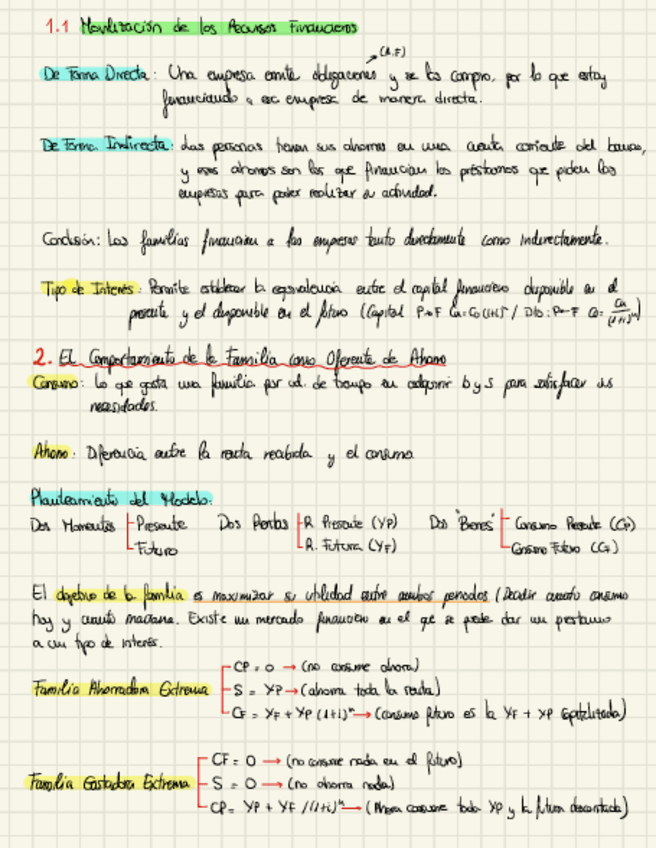 1.1 Movilización de los Recursos Financieros
(A.F)
De Forma Directa: Una empresa emite obligaciones y se las compro, por lo que estoy
financiando a esa empresa de manera directa.
De Forma Indirecta: Las personas tienen sus ahorros en una cuenta corriente del banco,
y esos ahorros son los que financian los préstamos que piden las
empresas para poder realizar su actividad.
Conclusión: Las familias financian a las empresas tanto directamente como indirectamente.
Tipo de Interés: Permite establecer la equivalencia entre el capital financiero disponible en el
presente y el disponible en el futuro (Capital P→F Cn=Co(1+i)ⁿ / Dto: P←F Co= Cn/(1+i)ⁿ)
2. El Comportamiento de la Familia como Oferente de Ahorro
Consumo: Lo que gasta una familia por ud. de tiempo en adquirir b y s para satisfacer sus
necesidades.
Ahorro: Diferencia entre la renta recibida y el consumo
Planteamiento del Modelo:
Dos Momentos Presente Dos Rentas R. Presente (YP) Dos "Bienes" Consumo Presente (CP)
Futuro R. Futura (YF) Consumo Futuro (CF)
El objetivo de la familia es maximizar su utilidad entre ambos periodos (Decidir cuanto consumo
hoy y cuanto mañana. Existe un mercado financiero en el que se puede dar un préstamo
a un tipo de interés.
CP = 0 → (no consume ahora)
Familia Ahorradora Extrema S = YP → (ahorra toda la renta)
CF = YF + YP (1+i)ⁿ → (consumo futuro es la YF + YP capitalizada)
CF = 0 → (no consume nada en el futuro)
Familia Gastadora Extrema S = 0 → (no ahorra nada)
CP = YP + YF /(1+i)ⁿ → (Ahora consume toda YP y la futura descontada)